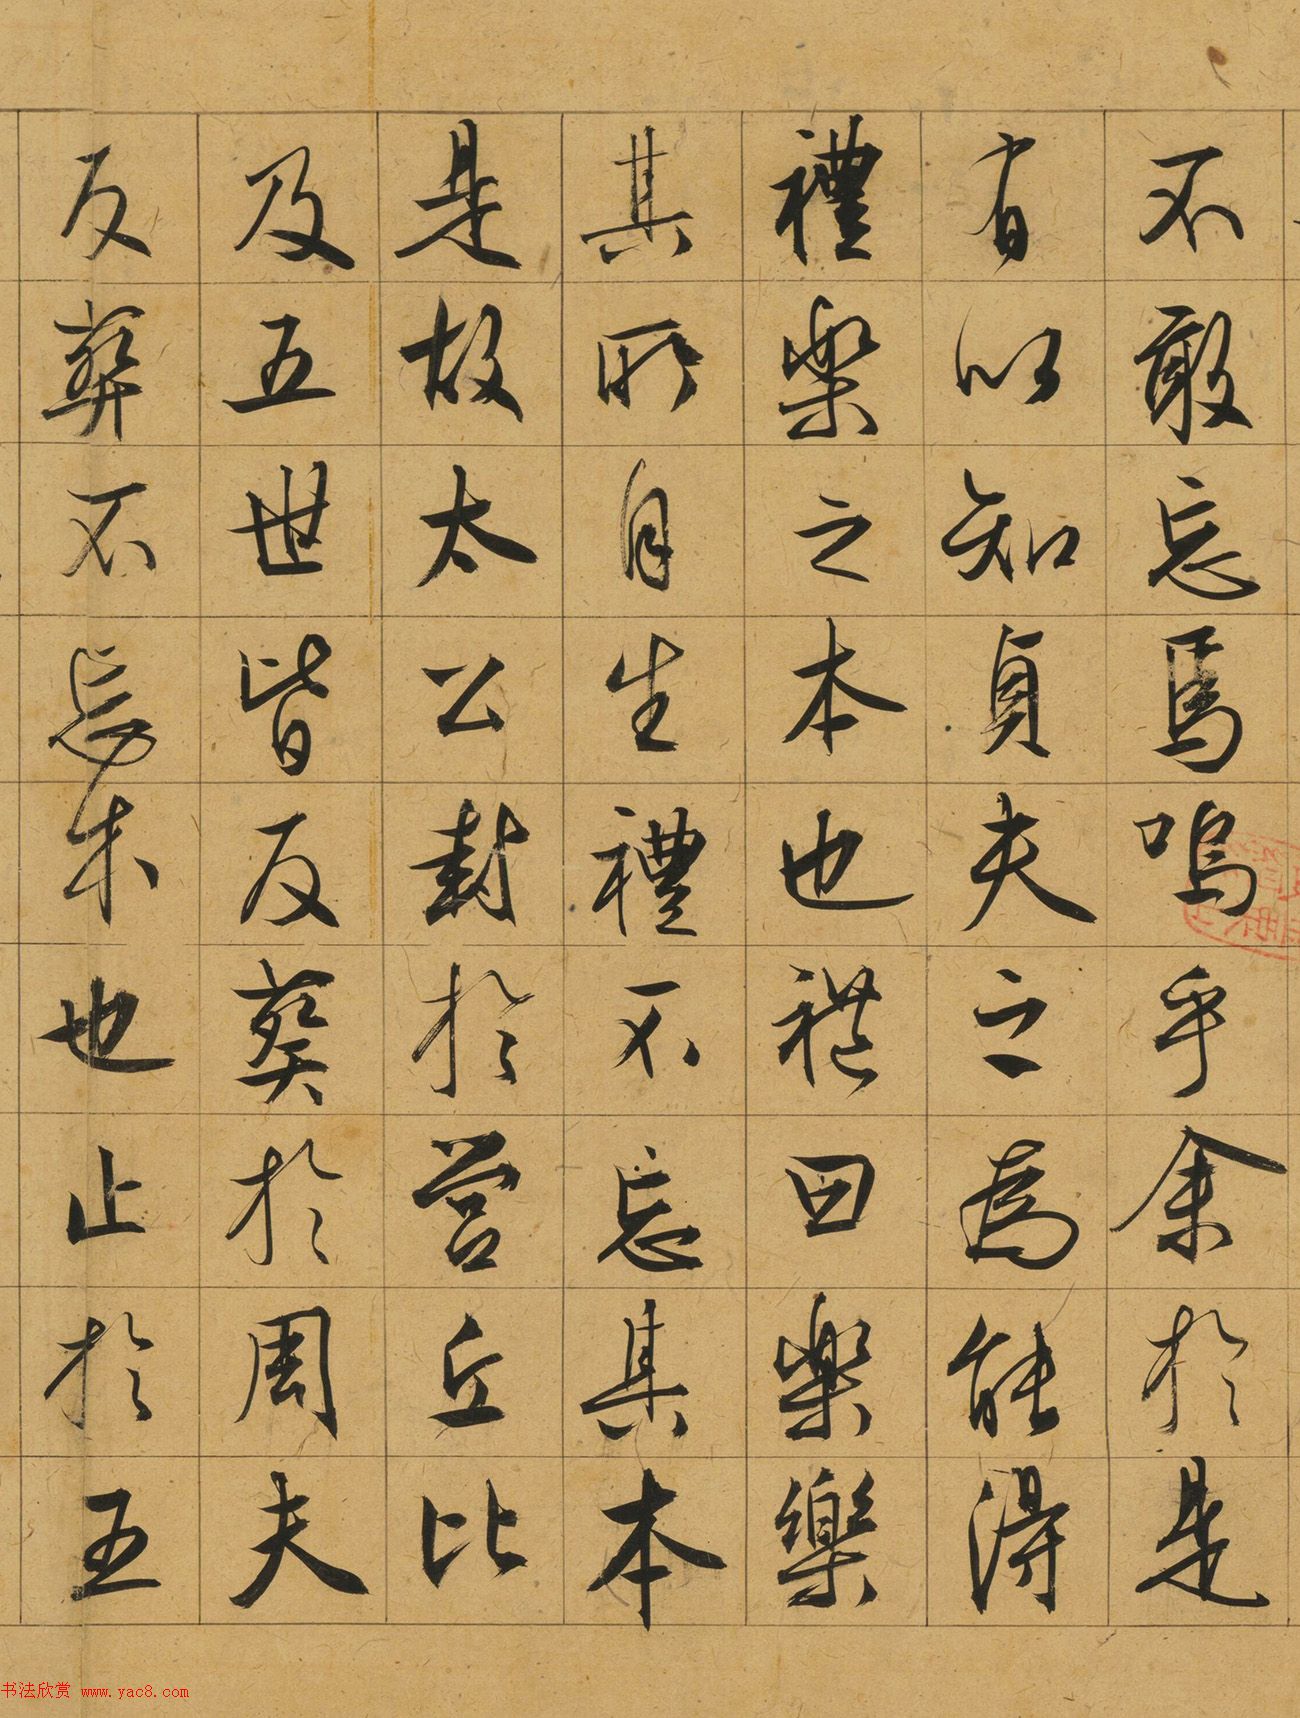 不敢忘焉嗚乎余於是
有以知貞夫之為能得
禮樂之本也禮曰樂樂
其所自生禮不忘其本
是故太公封於營丘比
及五世皆反葬於周夫
反葬不忘本也止於五
书法欣赏 www.yac8.com